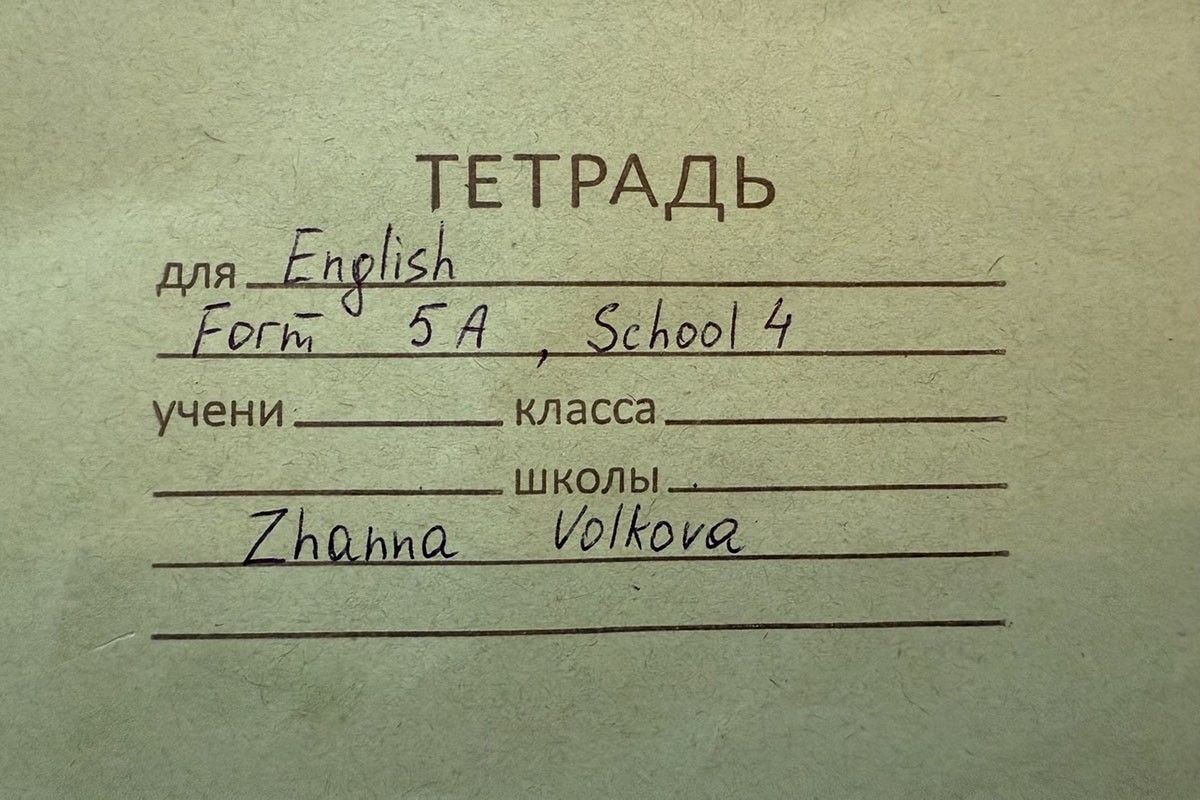 ТЕТРАДЬ
для English
Form 5A, School 4
учени класса
школы
Zhanna Volkova